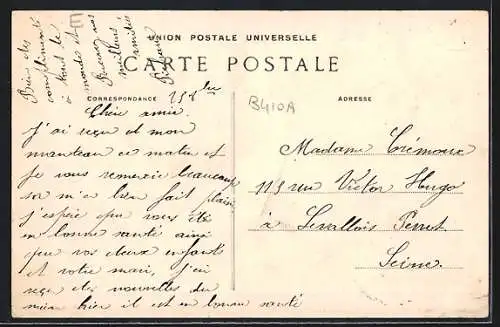 UNION POSTALE UNIVERSELLE
CARTE POSTALE
CORRESPONDANCE
ADRESSE
B410A
15 8bre
Chère amie
J'ai reçu et mon
manteau ce matin et
je vous remercie beaucoup
sa m'a bien fait plaisir
j'espère que vous été
en bonne santé ainsi
que vos deux enfants
et votre mari, j'ai
reçu des nouvelles du
mien hier il est en bonne santé
Bien des
compliments
à tout le
monde et
Recevez nos
meilleurs
amitiés
Madame Crémoux
113 rue Victor Hugo
à Levallois Perret
Seine